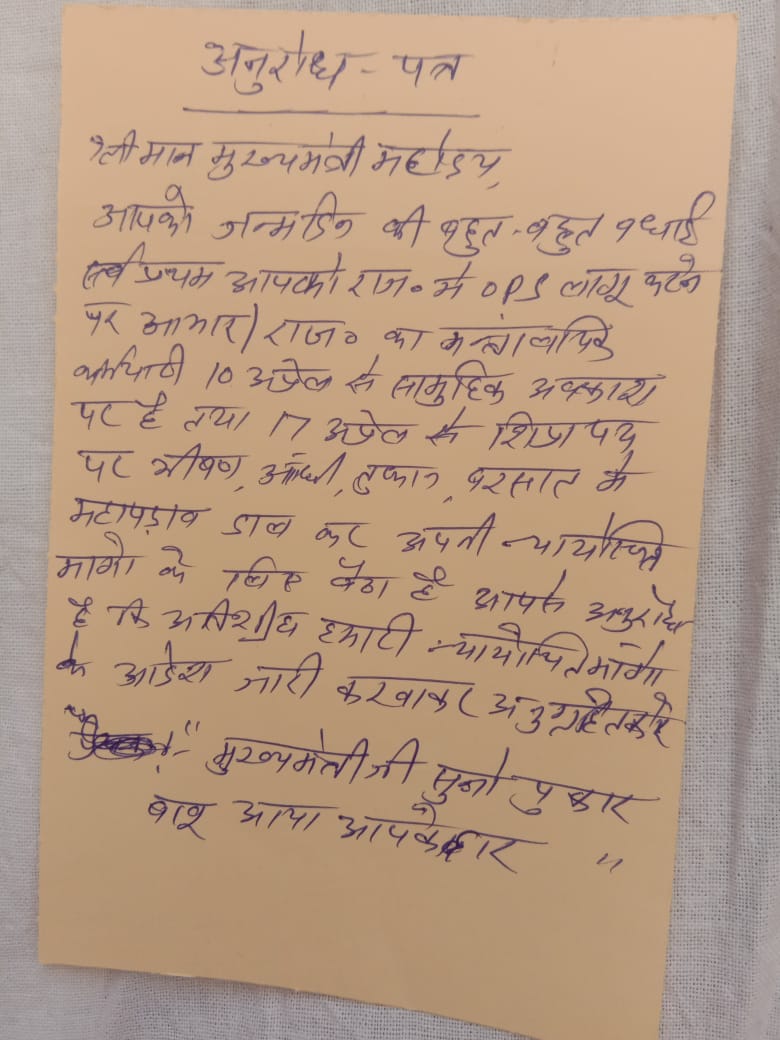 अनुरोध - पत्र
श्रीमान मुख्यमंत्री महोदय,
आपको जन्मदिन की बहुत-बहुत बधाई
सर्व प्रथम आपको राज० मे OPS लागू करने
पर आभार) राज० का मन्त्रालयिक
कर्मचारी 10 अप्रेल से सामुहिक अवकाश
पर है तथा 17 अप्रेल से शिप्रा पथ
पर भीषण, आंधी, तुफान, बरसात मे
महापड़ाव डाल कर अपनी न्यायोचित
मांगो के लिए बैठा है आपसे अनुरोध
है कि अतिशीघ्र हमारी न्यायोचित मांगो
के आदेश जारी करवाकर अनुग्रहित करे
" मुख्यमंत्री जी सुनो पुकार
बाबू आया आपके द्वार "